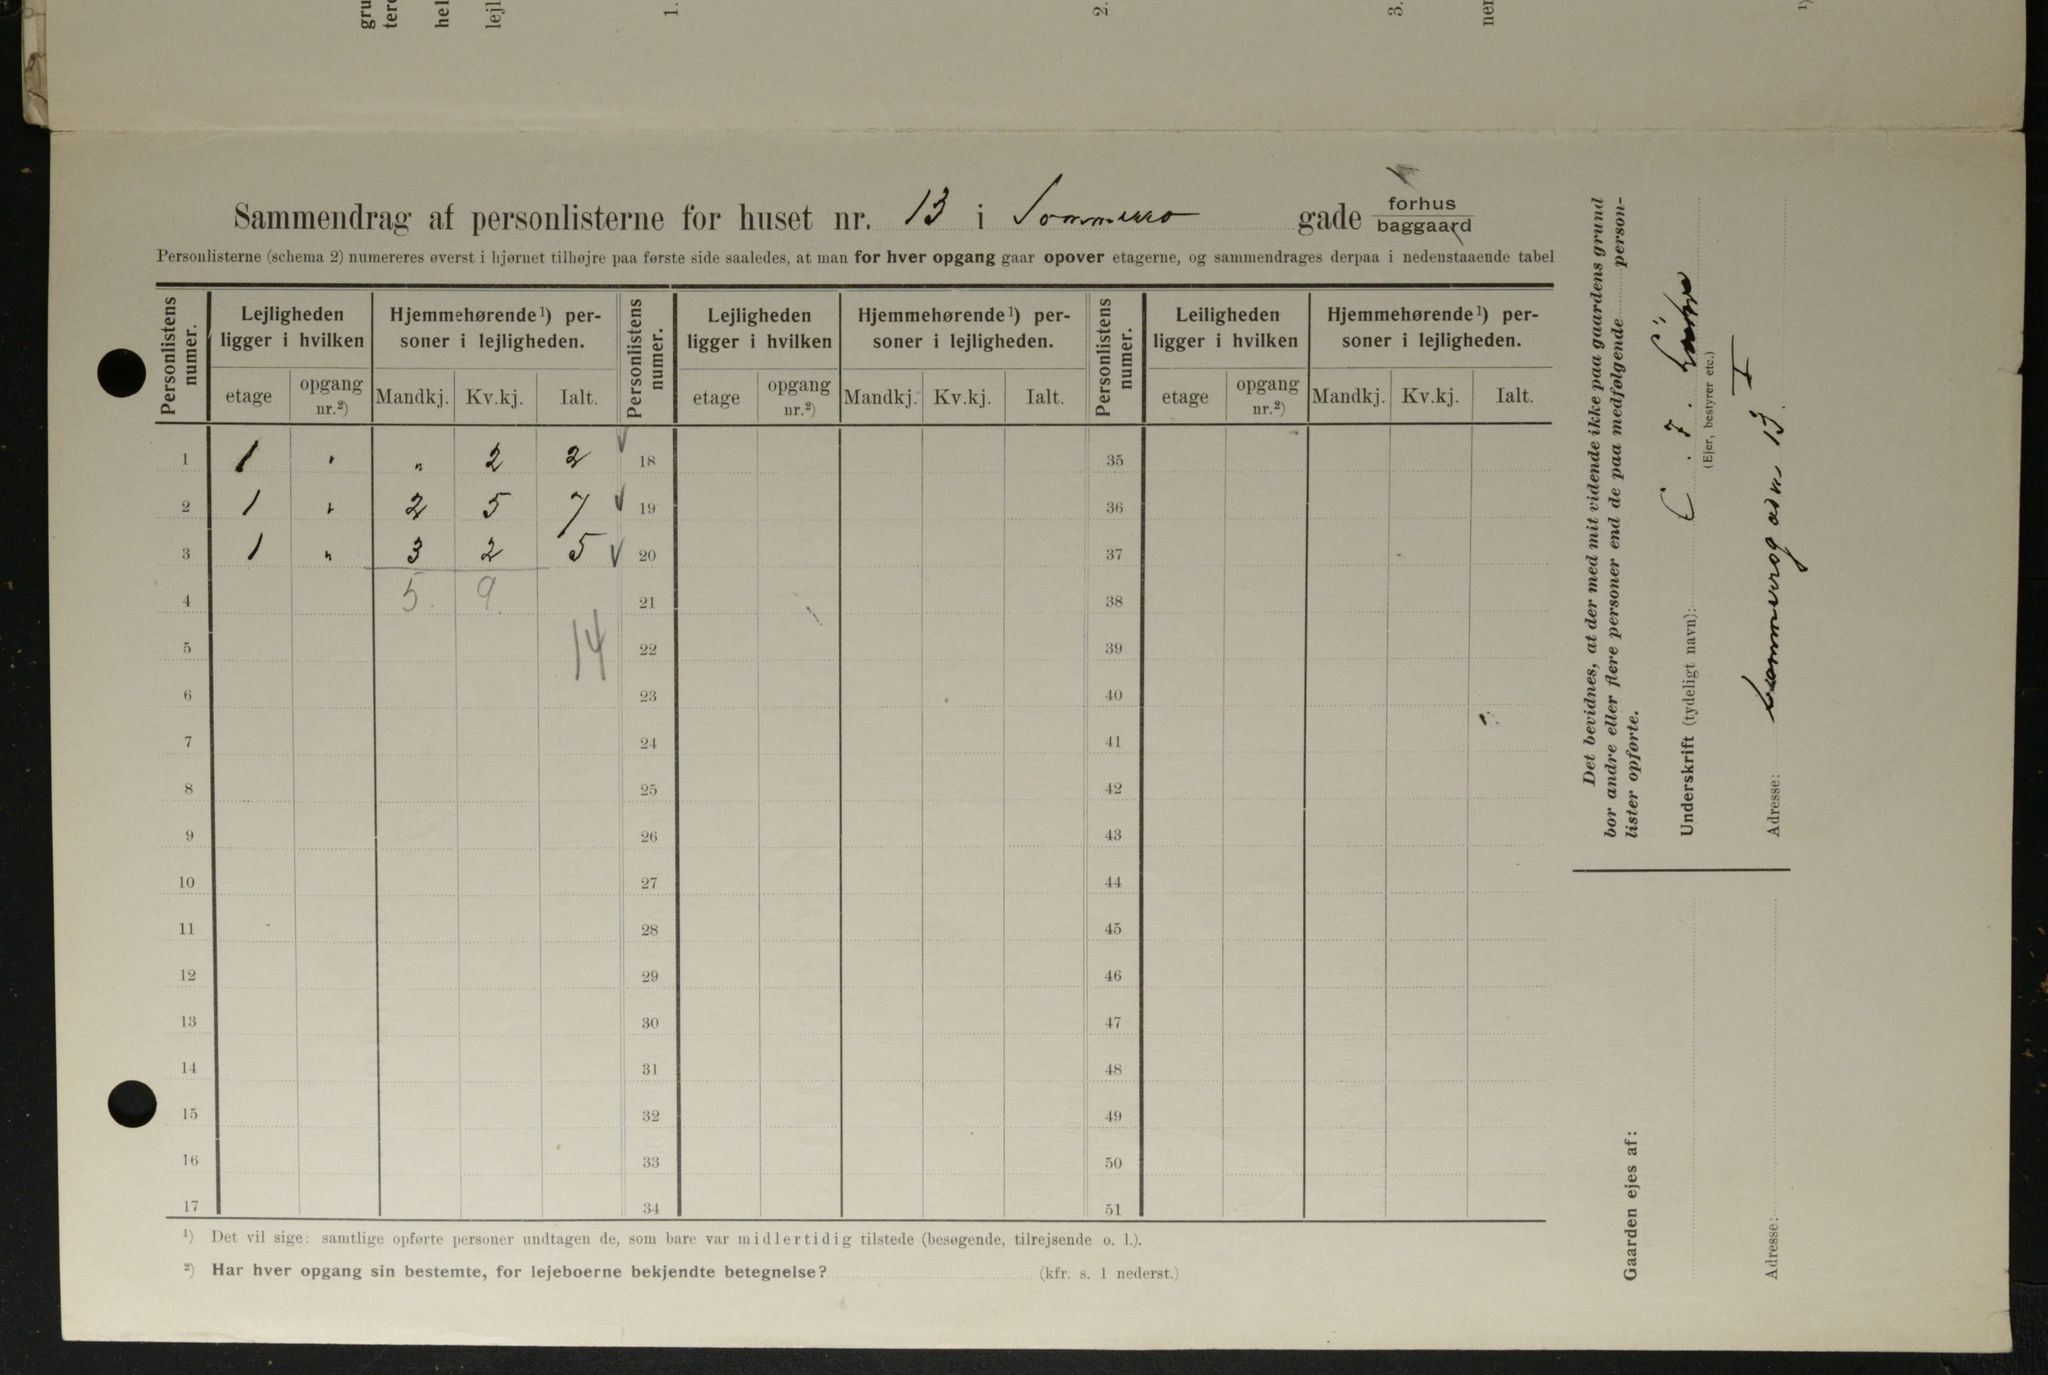 gru
tere
hel
lejl
1.
2.
3.
ner
1)
Sammendrag af personlisterne for huset nr. 13 i Sommerro gade forhus
baggaard
Personlisterne (schema 2) numereres øverst i hjørnet tilhøjre paa første side saaledes, at man for hver opgang gaar opover etagerne, og sammendrages derpaa i nedenstaaende tabel
Personlistens numer. Lejligheden ligger i hvilken Hjemmehørende¹) personer i lejligheden. Personlistens numer. Lejligheden ligger i hvilken Hjemmehørende¹) personer i lejligheden. Personlistens numer. Leiligheden ligger i hvilken Hjemmehørende¹) personer i lejligheden.
etage opgang nr.²) Mandkj. Kv.kj. Ialt. etage opgang nr.²) Mandkj. Kv.kj. Ialt. etage opgang nr.²) Mandkj. Kv.kj. Ialt.
1 1 " " 2 2 ✓ 18 35
2 1 " 2 5 7 ✓ 19 36
3 1 " 3 2 5 ✓ 20 37
4 5. 9. 21 38
5 14 22 39
6 23 40
7 24 41
8 25 42
9 26 43
10 27 44
11 28 45
12 29 46
13 30 47
14 31 48
15 32 49
16 33 50
17 34 51
¹) Det vil sige: samtlige opførte personer undtagen de, som bare var midlertidig tilstede (besøgende, tilrejsende o. l.).
²) Har hver opgang sin bestemte, for lejeboerne bekjendte betegnelse? (kfr. s. 1 nederst.)
Det bevidnes, at der med mit vidende ikke paa gaardens grund
bor andre eller flere personer end de paa medfølgende person-
lister opførte.
Underskrift (tydeligt navn): C. F.
(Ejer, bestyrer etc.)
Adresse: Sommerrogaden 13 I
Gaarden ejes af:
Adresse: